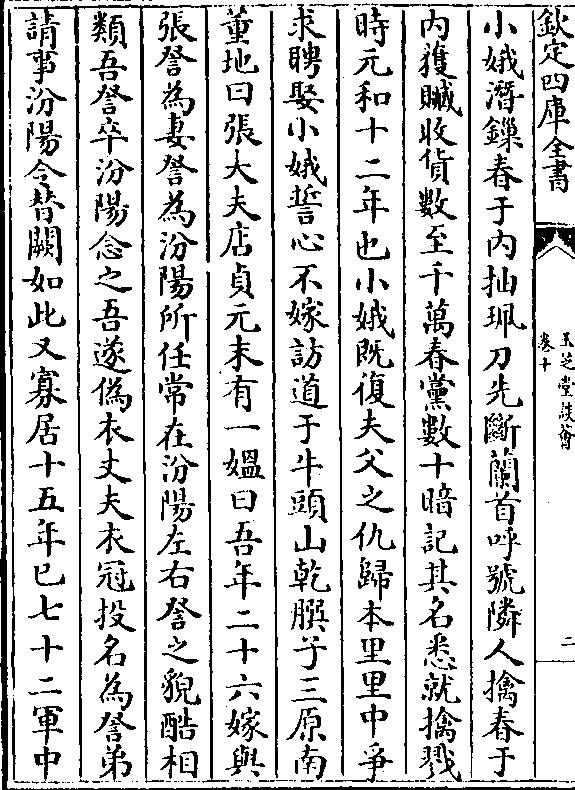 欽定四庫全書
玉芝堂談薈
卷十
二
小娥潛鏁春于内抽珮刀先斷蘭首呼號隣人擒春于
内獲贓收貨數至千萬春黨數十暗記其名悉就擒戮
時元和十二年也小娥既復夫父之仇歸本里里中爭
求聘娶小娥誓心不嫁訪道于牛頭山乾𦠆子三原南
董地曰張大夫店貞元末有一媼曰吾年二十六嫁與
張詧為妻詧為汾陽所任常在汾陽左右詧之貌酷相
類吾詧卒汾陽念之吾遂偽衣丈夫衣冠投名為詧弟
請事汾陽令替闕如此又寡居十五年已七十二軍中